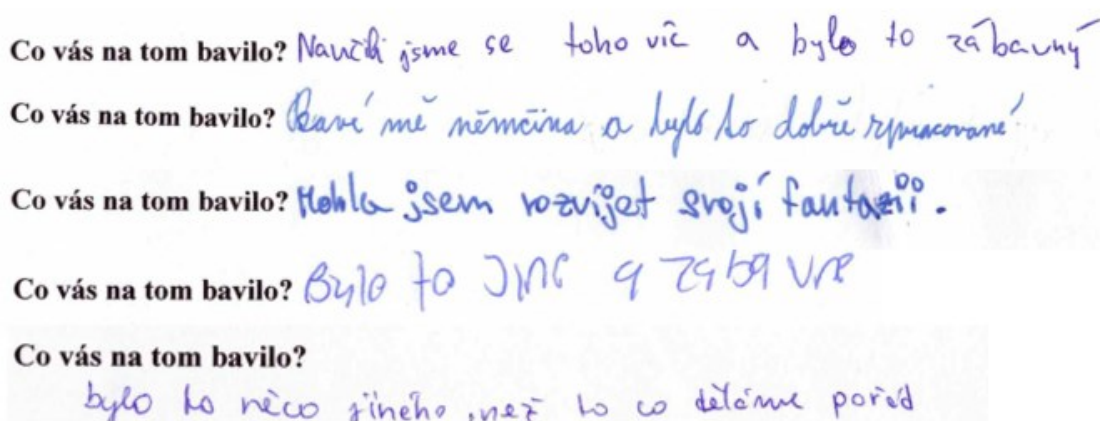 Co vás na tom bavilo? Naučili jsme se toho víc a bylo to zábavný
Co vás na tom bavilo? Baví mě němčina a bylo to dobře zpracované
Co vás na tom bavilo? Mohla jsem rozvíjet svojí fantazii.
Co vás na tom bavilo? Bylo to JINÉ a zábavné
Co vás na tom bavilo?
bylo to něco jiného, než to co děláme pořád